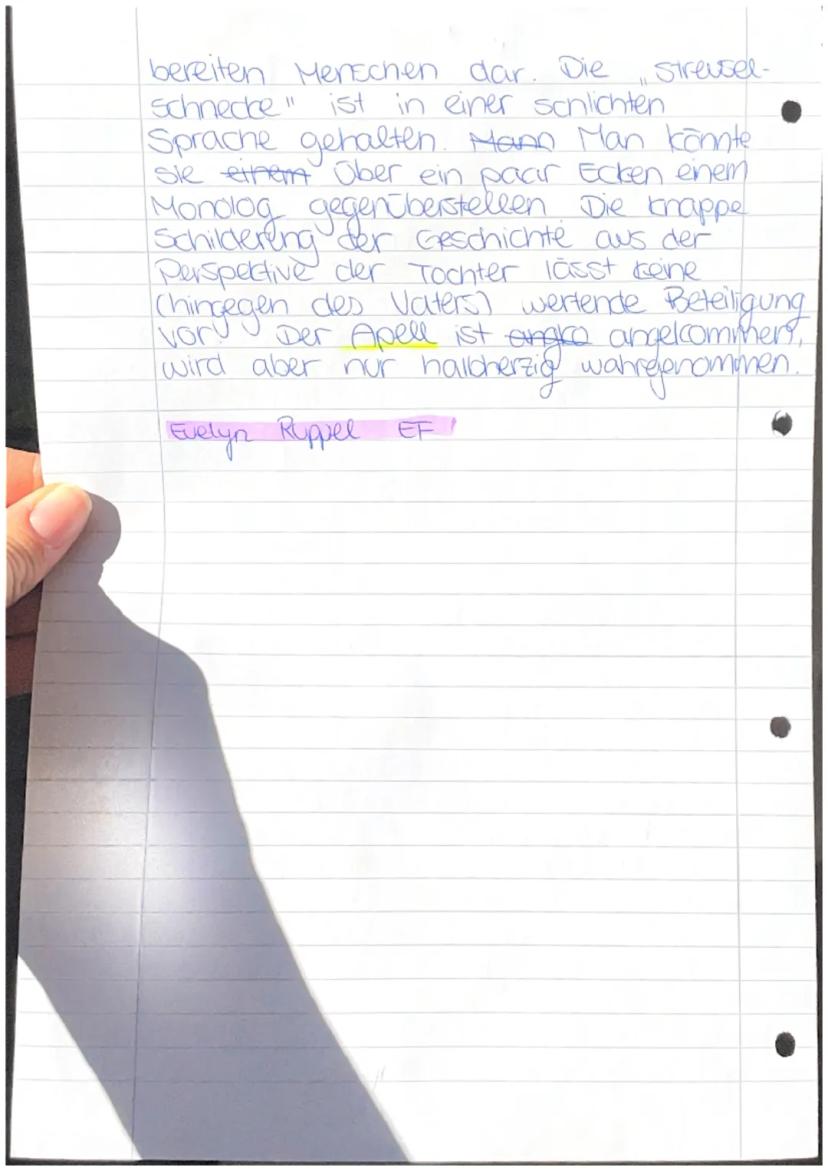 bereiten Menschen dar. Die „Streusel-
schnecke" ist in einer schlichten
Sprache gehalten. Mann Man könnte
sie einem über ein paar Ecken einem
Monolog gegenüberstellen Die knappe
Schilderung der Geschichte aus der
Perspektive der Tochter lässt keine
(hingegen des Vaters) wertende Beteiligung
vor. Der Apell ist angko angekommen,
wird aber nur halbherzig wahrgenommen.
Evelyn Ruppel EF